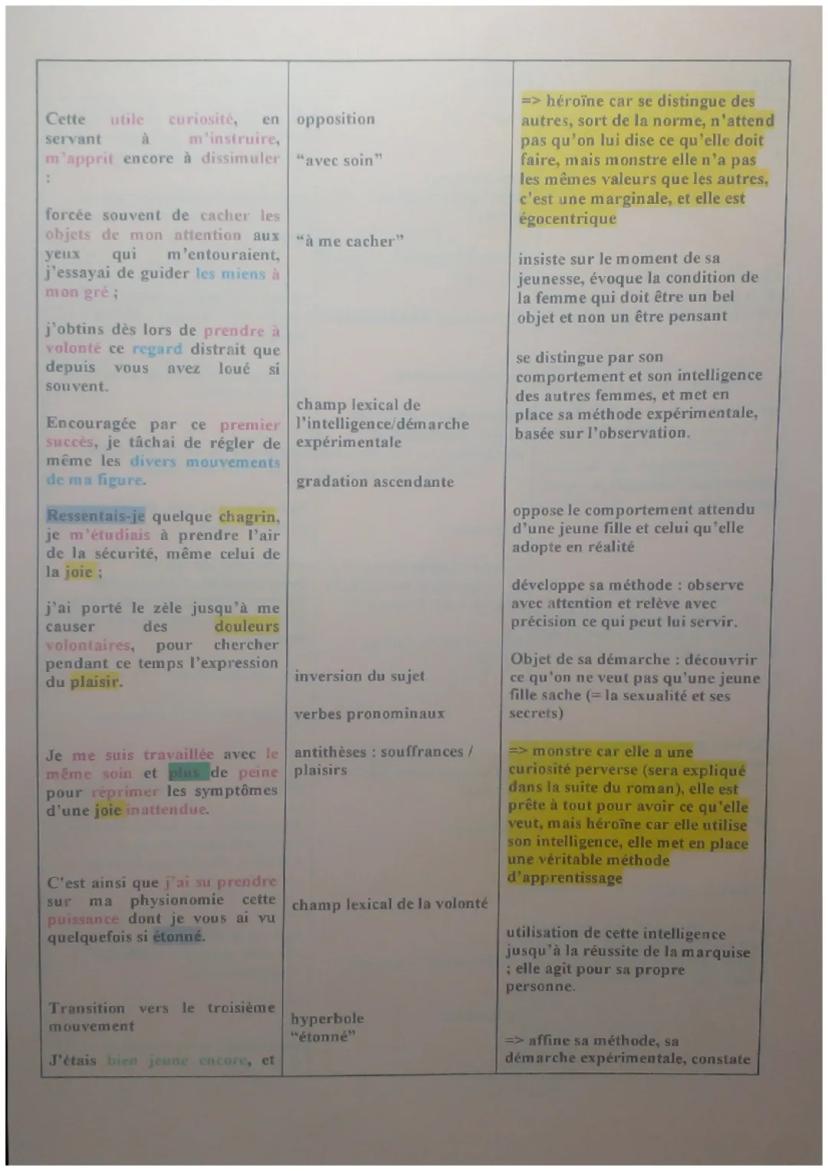 Cette utile curiosité, en
servant à m'instruire,
m'apprit encore à dissimuler
:
forcée souvent de cacher les
objets de mon attention aux
yeux qui m'entouraient,
j'essayai de guider les miens à
mon gré ;
j'obtins dès lors de prendre à
volonté ce regard distrait que
depuis vous avez loué si
souvent.
Encouragée par ce premier
succès, je tâchai de régler de
même les divers mouvements
de ma figure.
Ressentais-je quelque chagrin,
je m'étudiais à prendre l'air
de la sécurité, même celui de
la joie ;
j'ai porté le zèle jusqu'à me
causer des douleurs
volontaires, pour chercher
pendant ce temps l'expression
du plaisir.
Je me suis travaillée avec le
même soin et plus de peine
pour réprimer les symptômes
d'une joie inattendue.
C'est ainsi que j'ai su prendre
sur ma physionomie cette
puissance dont je vous ai vu
quelquefois si étonné.
Transition vers le troisième
mouvement
J'étais bien jeune encore, et
opposition
“avec soin”
“à me cacher”
champ lexical de
l'intelligence/démarche
expérimentale
gradation ascendante
inversion du sujet
verbes pronominaux
antithèses : souffrances /
plaisirs
champ lexical de la volonté
hyperbole
“étonné”
=> héroïne car se distingue des
autres, sort de la norme, n'attend
pas qu'on lui dise ce qu'elle doit
faire, mais monstre elle n'a pas
les mêmes valeurs que les autres,
c'est une marginale, et elle est
égocentrique
insiste sur le moment de sa
jeunesse, évoque la condition de
la femme qui doit être un bel
objet et non un être pensant
se distingue par son
comportement et son intelligence
des autres femmes, et met en
place sa méthode expérimentale,
basée sur l'observation.
oppose le comportement attendu
d'une jeune fille et celui qu'elle
adopte en réalité
développe sa méthode : observe
avec attention et relève avec
précision ce qui peut lui servir.
Objet de sa démarche : découvrir
ce qu'on ne veut pas qu'une jeune
fille sache (= la sexualité et ses
secrets)
=> monstre car elle a une
curiosité perverse (sera expliqué
dans la suite du roman), elle est
prête à tout pour avoir ce qu'elle
veut, mais héroïne car elle utilise
son intelligence, elle met en place
une véritable méthode
d'apprentissage
utilisation de cette intelligence
jusqu'à la réussite de la marquise
; elle agit pour sa propre
personne.
=> affine sa méthode, sa
démarche expérimentale, constate